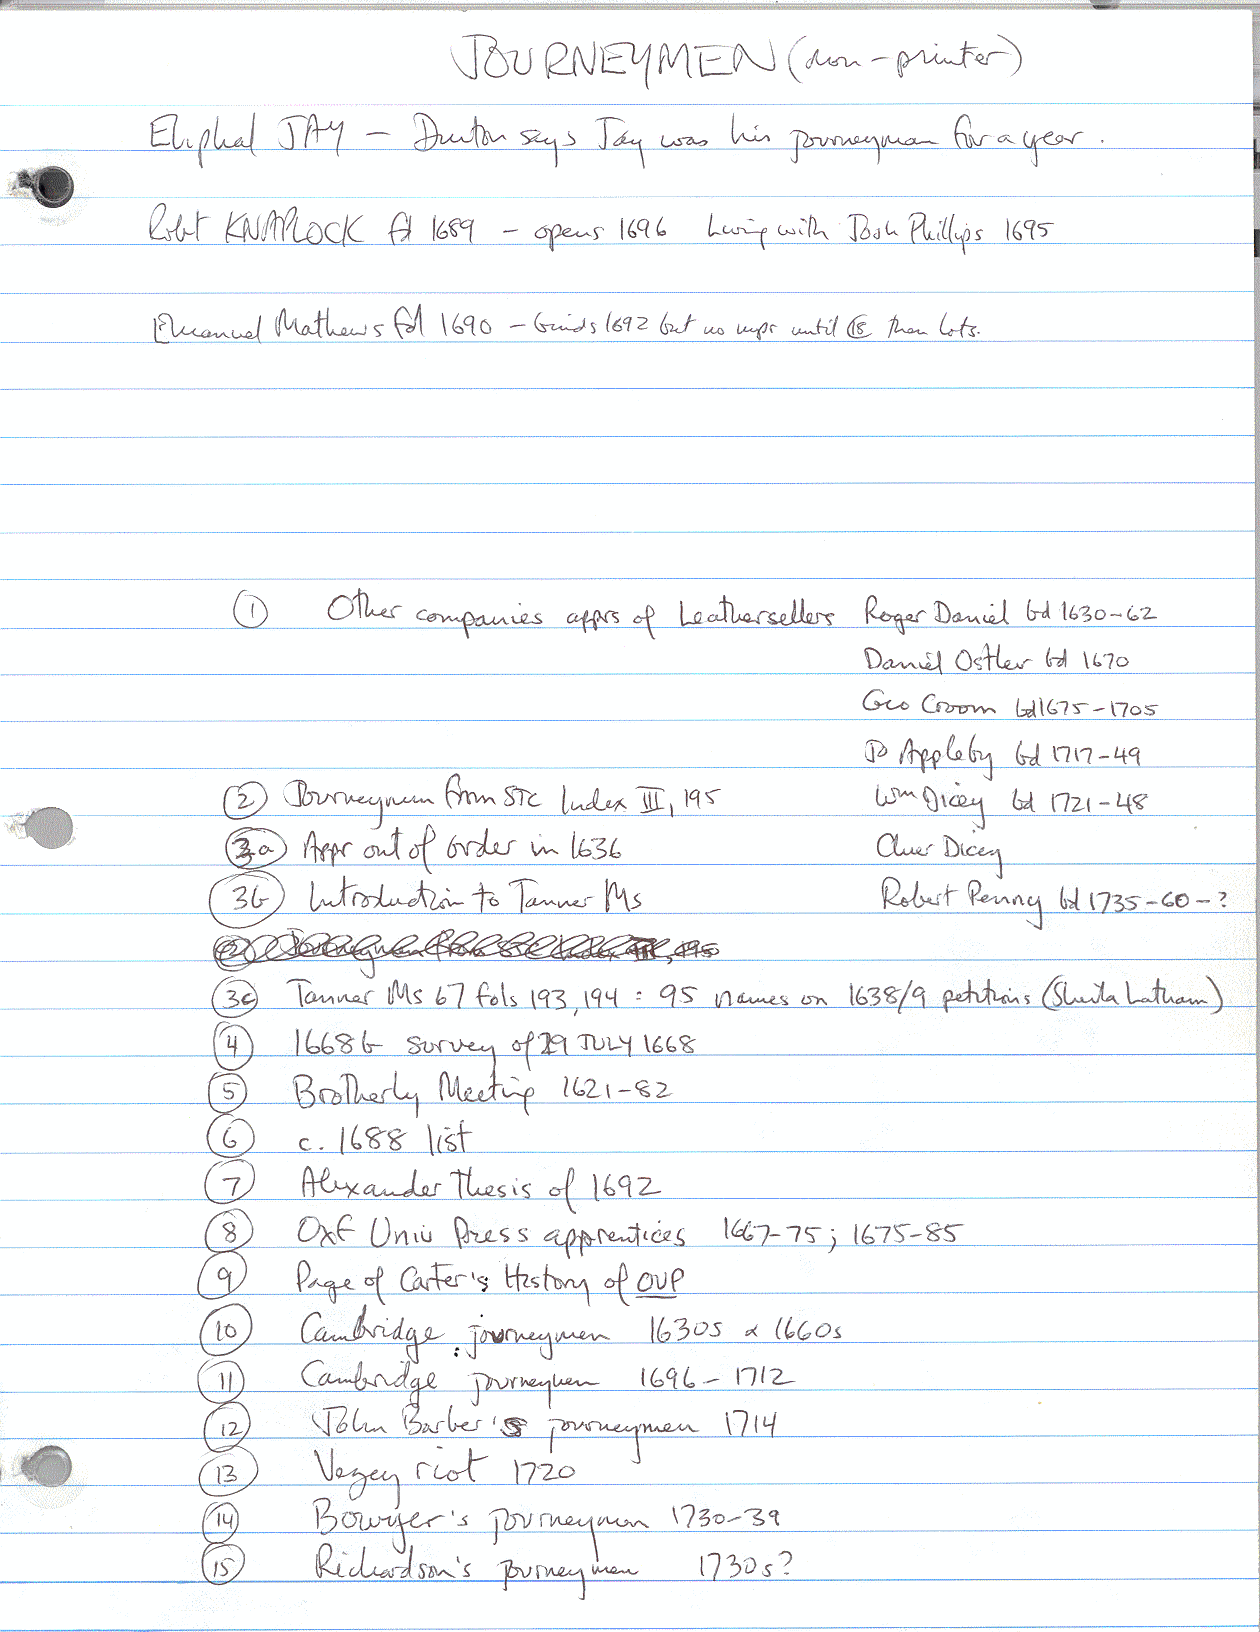 JOURNEYMEN (non-printer)
Eliphal JAY — Dunton says Jay was his journeyman for a year.
Robt KNAPLOCK fd 1689 - opens 1696 living with Josh Phillips 1695
Emanuel Mathews fd 1690 - binds 1692 but no impr until then lots.
① Other companies apprs of Leathersellers Roger Daniel bd 1630-62
Daniel Ostler bd 1670
Geo Croom bd 1675-1705
Jo Appleby bd 1717-49
② Journeymen from STC Index III, 195 Wm Dicey bd 1721-48
3a Appr out of order in 1636 Cluer Dicey
3b Introduction to Tanner Ms Robert Penny bd 1735-60-?
3c Tanner Ms 67 fols 193, 194 : 95 names on 1638/9 petitions (Sheila Latham)
④ 1668b survey of 29 JULY 1668
⑤ Brotherly Meeting 1621-82
⑥ c. 1688 list
⑦ Alexander Thesis of 1692
⑧ Oxf Univ Press apprentices 1667-75; 1675-85
⑨ Page of Carter's History of OUP
⑩ Cambridge journeymen 1630s & 1660s
⑪ Cambridge journeymen 1696-1712
⑫ John Barber's journeymen 1714
⑬ Vezey riot 1720
⑭ Bowyer's journeymen 1730-39
⑮ Richardson's journeymen 1730s?